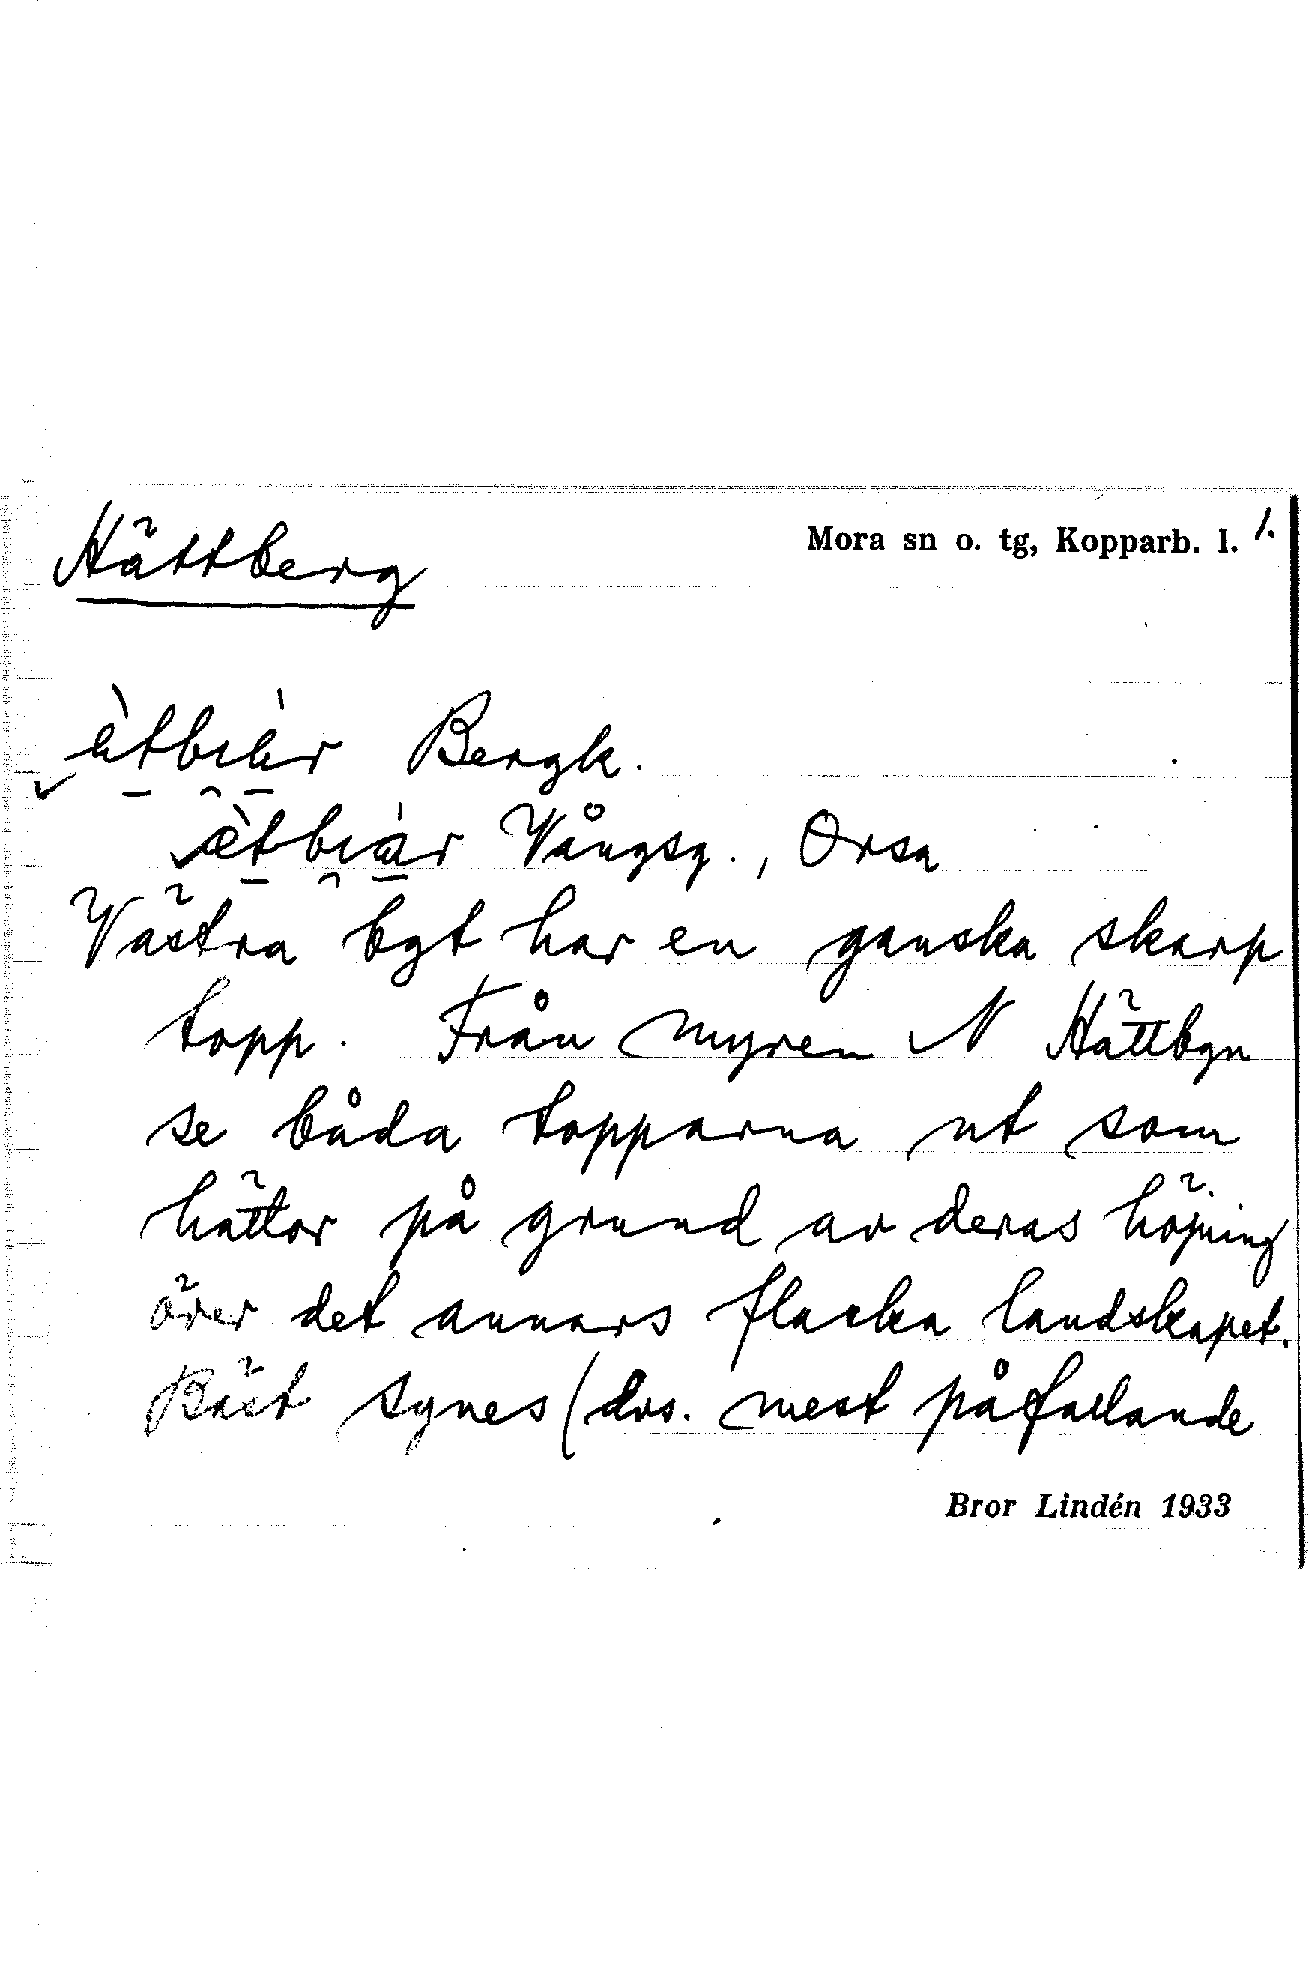 Hättberg
Mora sn o. tg, Kopparb. l. 1.
Bergk.
Vångsg., Orsa
Västra bgt har en ganska skarp
topp. Från myren N Hättbgn
se båda topparna ut som
hättor på grund av deras höjning
över det annars flacka landskapet.
Bäst synes (dvs. mest påfallande
Bror Lindén 1933